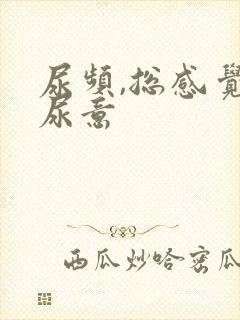 尿頻,总感覺
尿意
西瓜炒哈密瓜